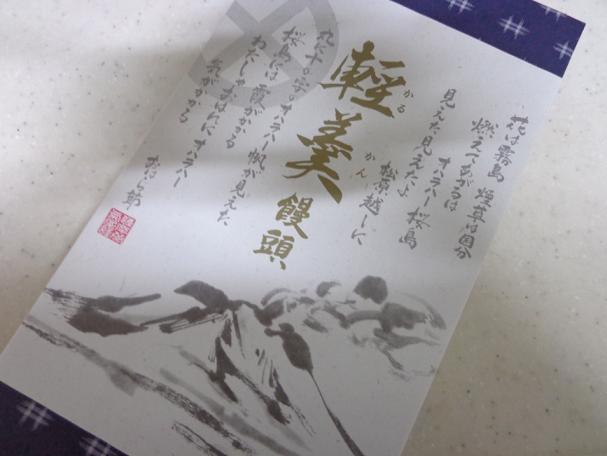 花は霧島 煙草は国分
燃えてあがるは
オハラハー 桜島
見えた見えたよ
松原越しに
軽羹
かる
かん
饅頭
丸に十の字の オハラハー 帆が見えた
桜島には 霞がかかる
わたしゃおはんに オハラハー
気がかかる
おはら節